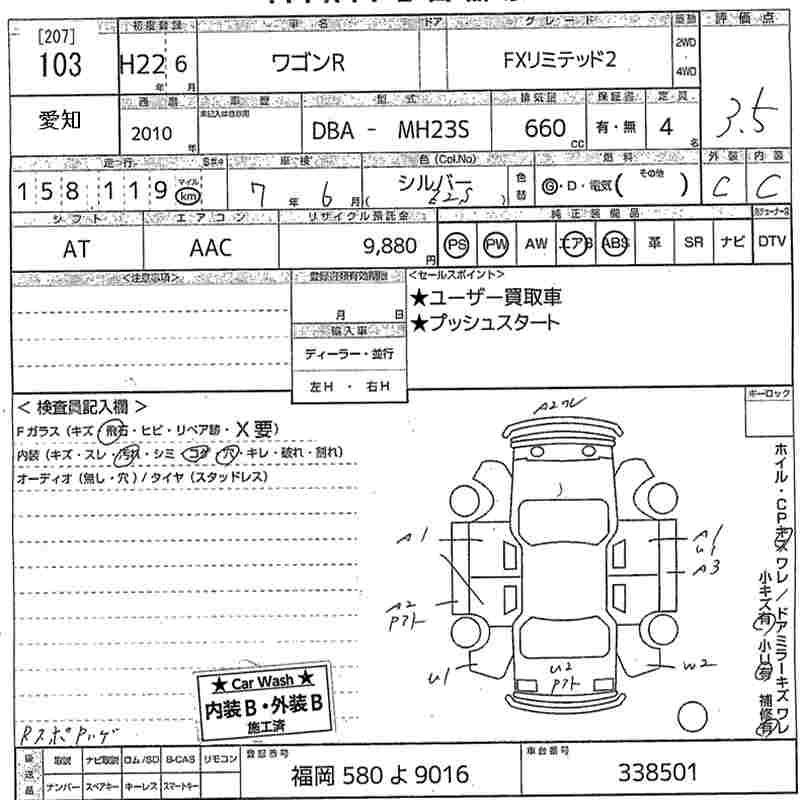 [207]
103
初度登録
H22 6
年 月
車名
ワゴンR
ドア
グレード
FXリミテッド2
駆動
2WD
・
4WD
評価点
3.5
愛知
西暦
2010 年
車歴
未記入は自家用
型式
DBA - MH23S
排気量
660 cc
保証書
有・無
定員
4 名
走行
158119
マイル
km
車検
7 年 6 月
色 (Col.No)
シルバー
( 62S )
色替
燃料
G・D・電気( その他 )
外装
C
内装
C
シフト
AT
エアコン
AAC
リサイクル預託金
9,880 円
純正装備品
PS PW AW エアB ABS 革 SR ナビ
DTV
<注意事項>
登録資格有効期限
月 日
輸入車
ディーラー・並行
左H ・ 右H
<セールスポイント>
★ユーザー買取車
★プッシュスタート
< 検査員記入欄 >
Fガラス (キズ・飛石・ヒビ・リペア跡・X要)
内装 (キズ・スレ・汚れ・シミ・コゲ・穴・キレ・破れ・割れ)
オーディオ (無し・穴) / タイヤ (スタッドレス)
キーロック
A2ワレ
A1
A1
U1
A3
A2
Pアト
U1
U2
Pアト
W2
ホイル・CPキズ ワレ / ドアミラーキズ ワレ
小キズ有 / 小U有 補修有
★ Car Wash ★
内装B・外装B
施工済
RスポPハゲ
後送品
取説 ナビ取説 ロム/SD B-CAS リモコン
ナンバー スペアキー キーレス スマートキー
登録番号
福岡 580 よ 9016
車台番号
338501